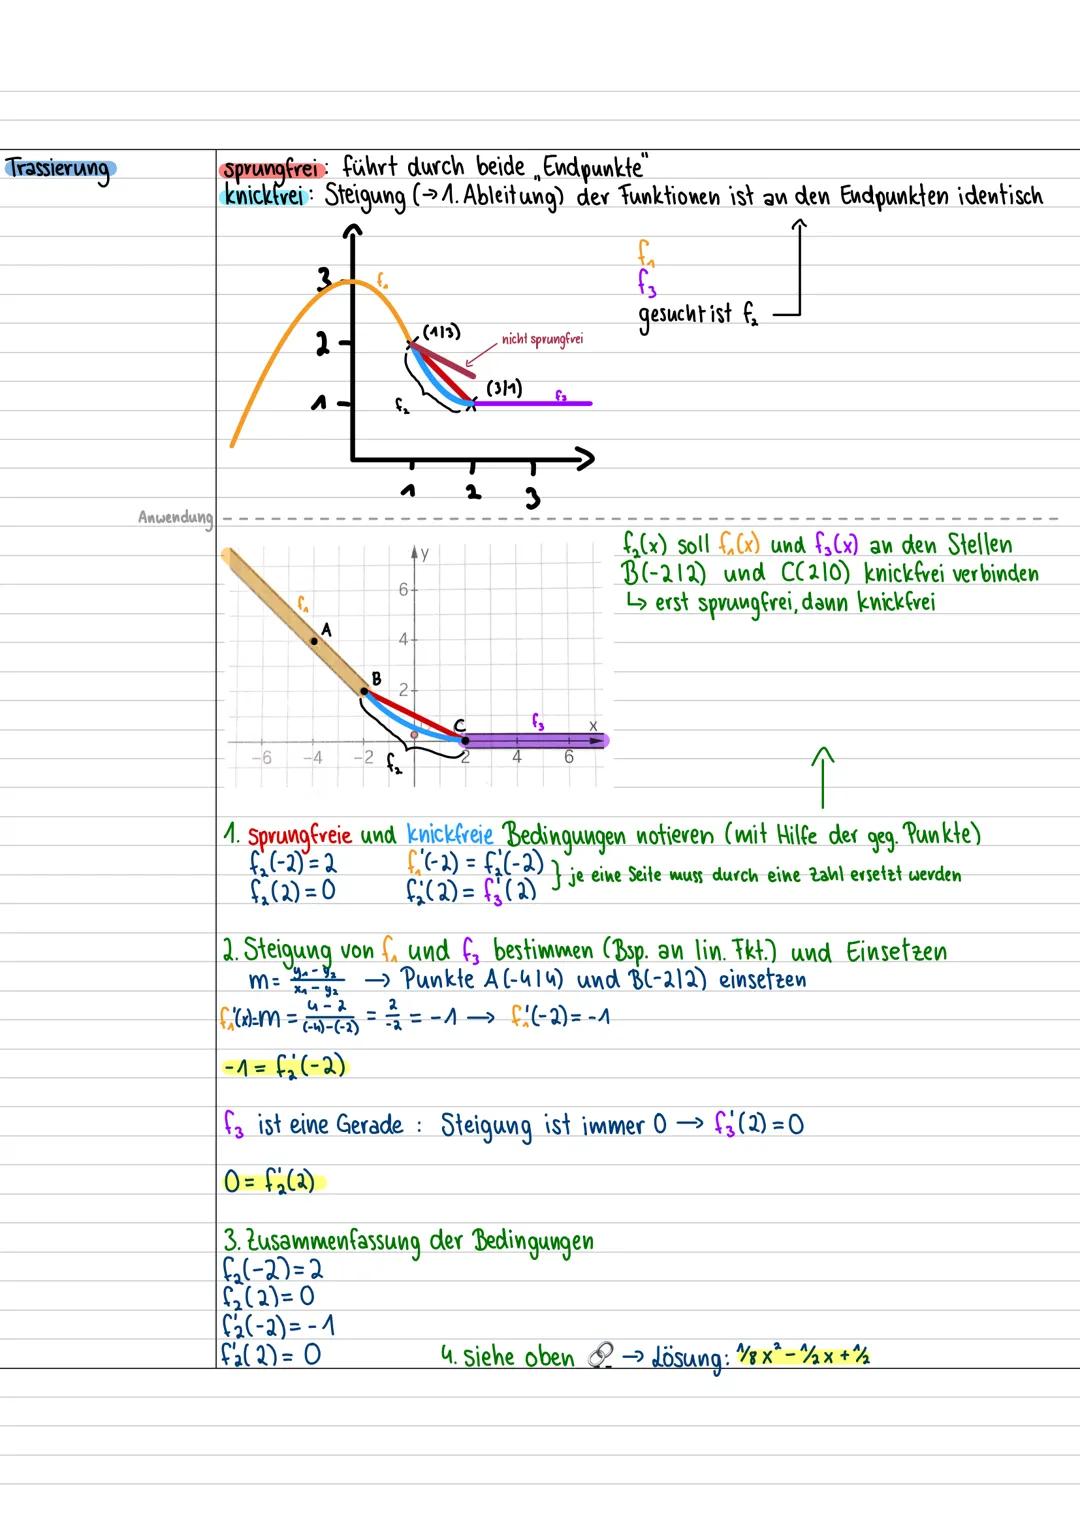 Trassierung
sprungfrei: führt durch beide „Endpunkte"
knickfrei: Steigung (→1. Ableitung) der Funktionen ist an den Endpunkten identisch
f₁
f₃
gesucht ist f₂
3
f₁
2
(1|3)
nicht sprungfrei
(3|1)
1
f₂
f₃
1 2 3
Anwendung
f₂(x) soll f₁(x) und f₃(x) an den Stellen
B(-2|2) und C(2|0) knickfrei verbinden
↳ erst sprungfrei, dann knickfrei
y
6
f₁
A
4
B
2
C
f₃
x
-6 -4 -2 2 4 6
f₂
1. sprungfreie und knickfreie Bedingungen notieren (mit Hilfe der geg. Punkte)
f₂(-2) = 2 f₁'(-2) = f₂'(-2)
f₂(2) = 0 f₂'(2) = f₃'(2) } je eine Seite muss durch eine Zahl ersetzt werden
2. Steigung von f₁ und f₃ bestimmen (Bsp. an lin. Fkt.) und Einsetzen
m = (y₁ - y₂)/(x₁ - y₂) → Punkte A(-4|4) und B(-2|2) einsetzen
f₁'(x)=m = (4-2)/((-4)-(-2)) = 2/-2 = -1 → f₁'(-2) = -1
-1 = f₂'(-2)
f₃ ist eine Gerade : Steigung ist immer 0 → f₃'(2) = 0
0 = f₂'(2)
3. Zusammenfassung der Bedingungen
f₂(-2) = 2
f₂(2) = 0
f₂'(-2) = -1
f₂'(2) = 0 4. siehe oben → Lösung: 1/8 x² - 1/2 x + 1/2